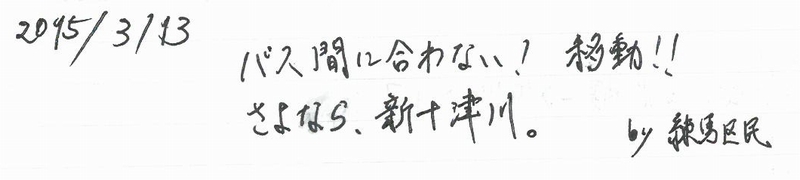 2015/3/13
バス間に合わない! 移動!!
さよなら、新十津川。
by 練馬区民